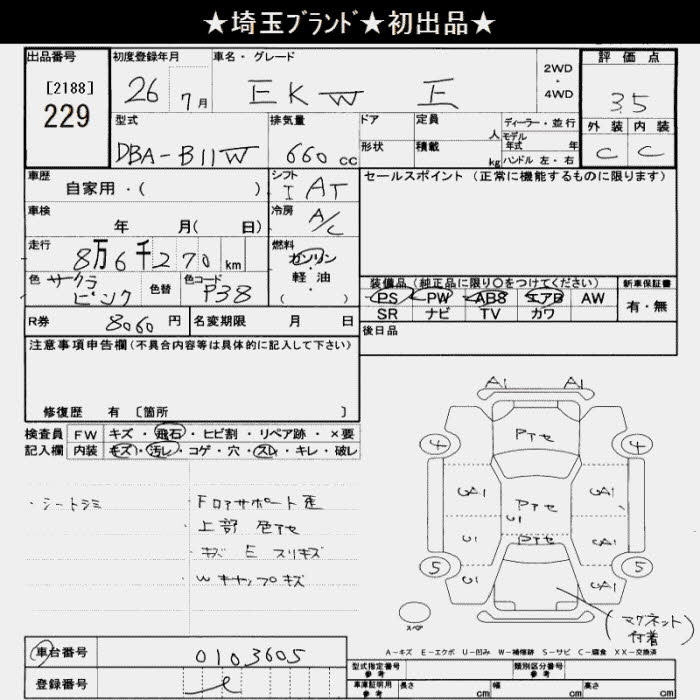 ★埼玉ﾌﾞﾗﾝﾄﾞ★初出品★
出品番号 初度登録年月 車名・グレード 2WD・4WD 評価点
[2188] 229 26 7月 EKW E 3.5
型式 排気量 ドア 定員 人 ディーラー・並行 外装 内装
DBA-B11W 660cc 形状 積載 kg モデル年式 年 ハンドル 左・右 C C
車歴 シフト セールスポイント(正常に機能するものに限ります)
自家用・( ) I AT
車検 冷房
年 月( 日) A/C
走行 燃料
8万6千270km ガソリン・軽油
色 サクラピンク 色替 色コード P38 ( )
装備品(純正品に限り○をつけてください) 新車保証書
PS PW ABS エアB AW 有・無
SR ナビ TV カワ
R券 8060円 名変期限 月 日 後日品
注意事項申告欄(不具合内容等は具体的に記入して下さい)
修復歴 有 〔箇所 〕
検査員 FW キズ・飛石・ヒビ割・リペア跡・×要
記入欄 内装 キズ・汚レ・コゲ・穴・スレ・キレ・破レ
A1 A1
4 PTセ 4
・シートシミ ・Fロアサポート歪
・上部 色アセ
・キズ E スリキズ
・Wキャップキズ
UA1 PTセ UA1
U1
U PTセ UA1
5 U UA1 5
(マグネット付着)
スペア
A-キズ E-エクボ U-凹み W-補修跡 S-サビ C-腐食 XX-交換済
車台番号 0103605
登録番号
型式指定番号 参考 類別区分番号 参考
車庫証明用 参考 長さ cm 幅 cm 高さ cm